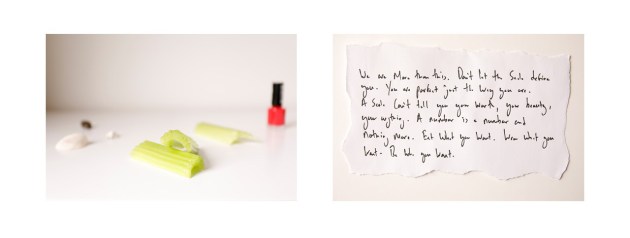 We are More than this. Don't let the Scale define
you. You are perfect just the way you are.
A Scale Can't tell you your worth, your beauty,
your anything. A number is a number and
Nothing more. Eat What you Want. Wear what you
Want. Be Who you Want.